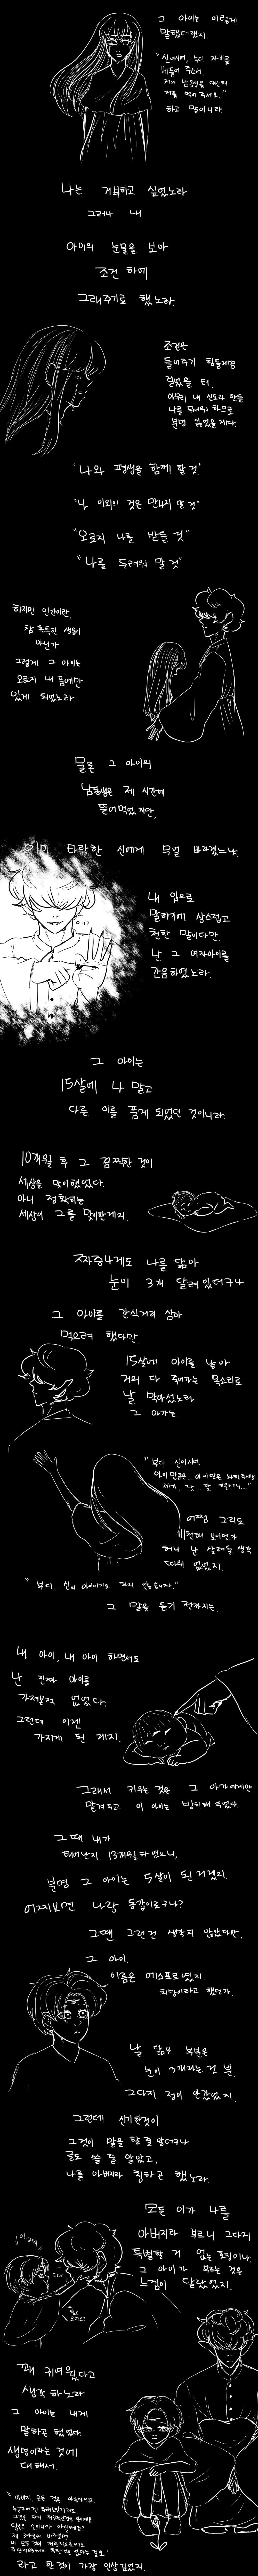 그 아이는 이렇게
말했더랬지.
"신이시여, 부디 자비를
베풀어 주소서.
저의 남동생을 대신해
저를 먹어 주세요."
하고 말이니라
나는 거부하고 싶었노라
그러나 내
아이의 눈물을 보아
조건 하에
그래주기로 했노라.
조건은
들어주기 힘들게끔
걸었을 터.
아무리 내 신도라 한들
나를 무서워 하므로
분명 싫었을게다.
"나와 평생을 함께 할 것"
"나 이외의 것은 만나지 말 것"
"오로지 나를 받들 것"
"나를 두려워 말 것"
하지만 인간이란,
참 독특한 생물이
아닌가.
그렇게 그 아이는
오로지 내 품에만
있게 되었노라.
물론 그 아이의
남동생은 제 시간에
뜯어먹었지만,
이미 타락한 신에게 무얼 바라겠느냐.
내 입으로
말하기에 상스럽고
천한 말이다만,
난 그 여자아이를
간음하였노라
그 아이는
15살에 나 말고
다른 이를 품게 되었던 것이니라.
10개월 후 그 끔찍한 것이
세상을 맞이했었다.
아니 정확히는
세상이 그를 맞이한게지.
짜증나게도 나를 닮아
눈이 3개 달려있더구나
그 아이를 간식거리 삼아
먹으려 했다만,
15살에 아이를 낳아
거의 다 죽어가는 목소리로
날 막아섰노라
그 아가는
"부디 신이시여
아이만큼은... 아이만은 놔둬주세요
제가, 잘... 잘 키울게요..."
어찌 그리도
비천해 보이던가
허나 난 살려둘 생각
따위 없었지.
"부디... 신의 아이이기도 하지 않습니까."
그 말을 듣기 전까지는.
내 아이, 내 아이 하면서도
난 진짜 아이를
가져본적 없었다.
그런데 이젠
가지게 된 게지.
그래서 키우는 것은 그 아가에게만
맡겨두고 이 아이는 방치해 두었다.
그때 내가
태어난지 13개월 차 였으니,
분명 그 아이는 5살이 된 거겠지.
어찌보면 나랑 동갑이로구나?
그땐 그런건 생각치 않았다만,
그 아이.
이름은 에스포르였지.
희망이라고 했던가.
날 닮은 부분은
눈이 3개라는 것 뿐.
그다지 정이 안갔었지.
그런데 신기한것이
그것이 말을 할 줄 알더구나
글도 쓸 줄 알았고,
나를 아버지라 칭하곤 했노라.
모든 이가 나를
아버지라 부르니 그다지
특별할 거 없는 호칭이나,
그 아이가 부르는 것은
느낌이 달랐었지.
아버지!
꽤 귀여웠다고
생각 하노라
그 아이는 내게
말하곤 했었다
생명이라는 것에
대해서.
"아버지, 모든 것은 아름다워요.
라고 한 것이 가장 인상깊었지.